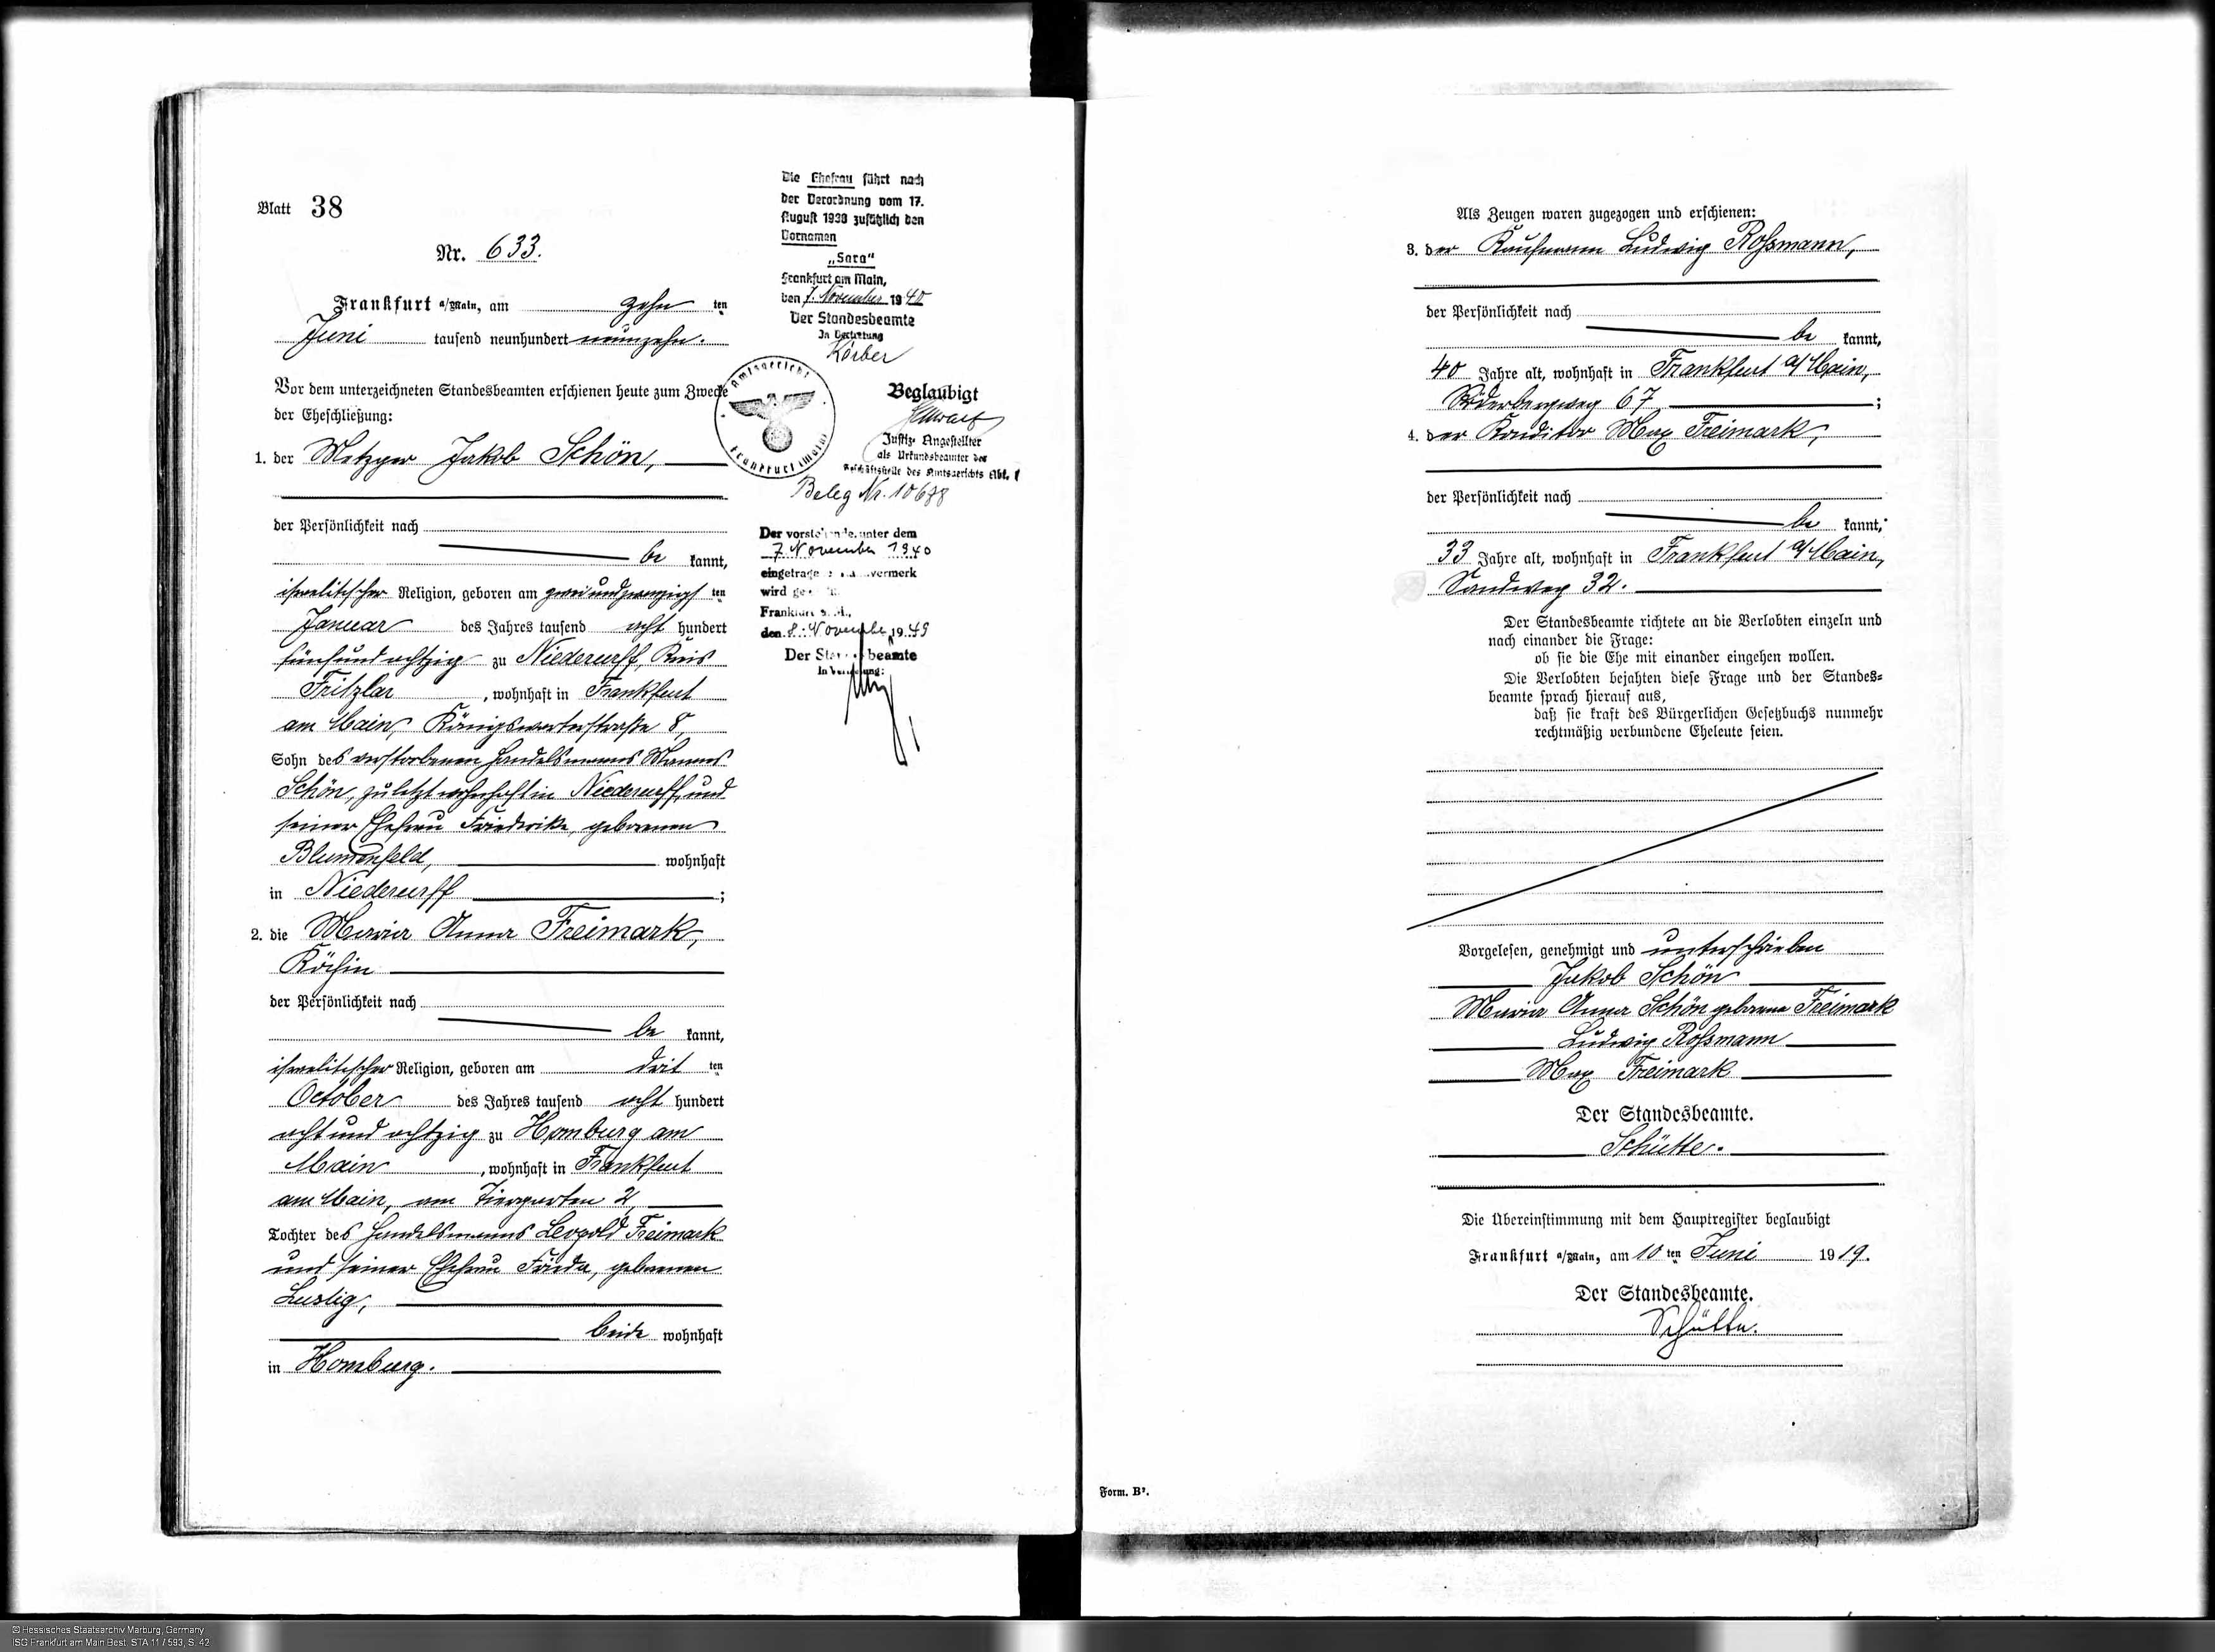 Blatt 38
Nr. 633.
Frankfurt a/Main, am zehn ten
Juni tausend neunhundert neunzehn.
Vor dem unterzeichneten Standesbeamten erschienen heute zum Zwecke
der Eheschließung:
1. der Metzger Jakob Schön,
der Persönlichkeit nach
be kannt,
israelitischer Religion, geboren am zweiundzwanzigs ten
Januar des Jahres tausend acht hundert
fünfundachtzig zu Niederurff, Kreis
Fritzlar, wohnhaft in Frankfurt
am Main, Königswarterstraße 8,
Sohn des verstorbenen Handelsmanns Manus
Schön, zuletzt wohnhaft in Niederurff, und
seiner Ehefrau Friederike, geborenen
Blumenfeld, wohnhaft
in Niederurff;
2. die Maria Anna Freimark,
Köchin
der Persönlichkeit nach
be kannt,
israelitischer Religion, geboren am drit ten
October des Jahres tausend acht hundert
acht und achtzig zu Homburg am
Main, wohnhaft in Frankfurt
am Main, am Tiergarten 2,
Tochter des Handelsmanns Leopold Freimark
und seiner Ehefrau Frieda, geborenen
Lustig,
beide wohnhaft
in Homburg.
Die Ehefrau führt nach
der Verordnung vom 17.
August 1938 zusätzlich den
Vornamen
„Sara“
Frankfurt am Main,
den 7. November 1940
Der Standesbeamte
In Vertretung
Körber
Amtsgericht
Frankfurt (Main)
Beglaubigt
Justiz-Angestellter
als Urkundsbeamter der
Geschäftsstelle des Amtsgerichts Abt. 1
Beleg Nr. 10688
Der vorstehende, unter dem
7. November 1940
eingetragene vermerk
wird
Frankfurt a. M.,
den 8. November 1949
Der Standesbeamte
In Vertretung:
Als Zeugen waren zugezogen und erschienen:
3. der Kaufmann Ludwig Roßmann,
der Persönlichkeit nach
be kannt,
40 Jahre alt, wohnhaft in Frankfurt a/Main,
Röderbergweg 67;
4. der Konditor Max Freimark,
der Persönlichkeit nach
be kannt,
33 Jahre alt, wohnhaft in Frankfurt a/Main,
Sandweg 32.
Der Standesbeamte richtete an die Verlobten einzeln und
nach einander die Frage:
ob sie die Ehe mit einander eingehen wollen.
Die Verlobten bejahten diese Frage und der Standes=
beamte sprach hierauf aus,
daß sie kraft des Bürgerlichen Gesetzbuchs nunmehr
rechtmäßig verbundene Eheleute seien.
Vorgelesen, genehmigt und unterschrieben
Jakob Schön
Maria Anna Schön geborene Freimark
Ludwig Roßmann
Max Freimark
Der Standesbeamte.
Schütte.
Die Übereinstimmung mit dem Hauptregister beglaubigt
Frankfurt a/Main, am 10 ten Juni 1919.
Der Standesbeamte.
Schütte.
Form. B².
© Hessisches Staatsarchiv Marburg, Germany
ISG Frankfurt am Main Best. STA 11 / 593, S. 42